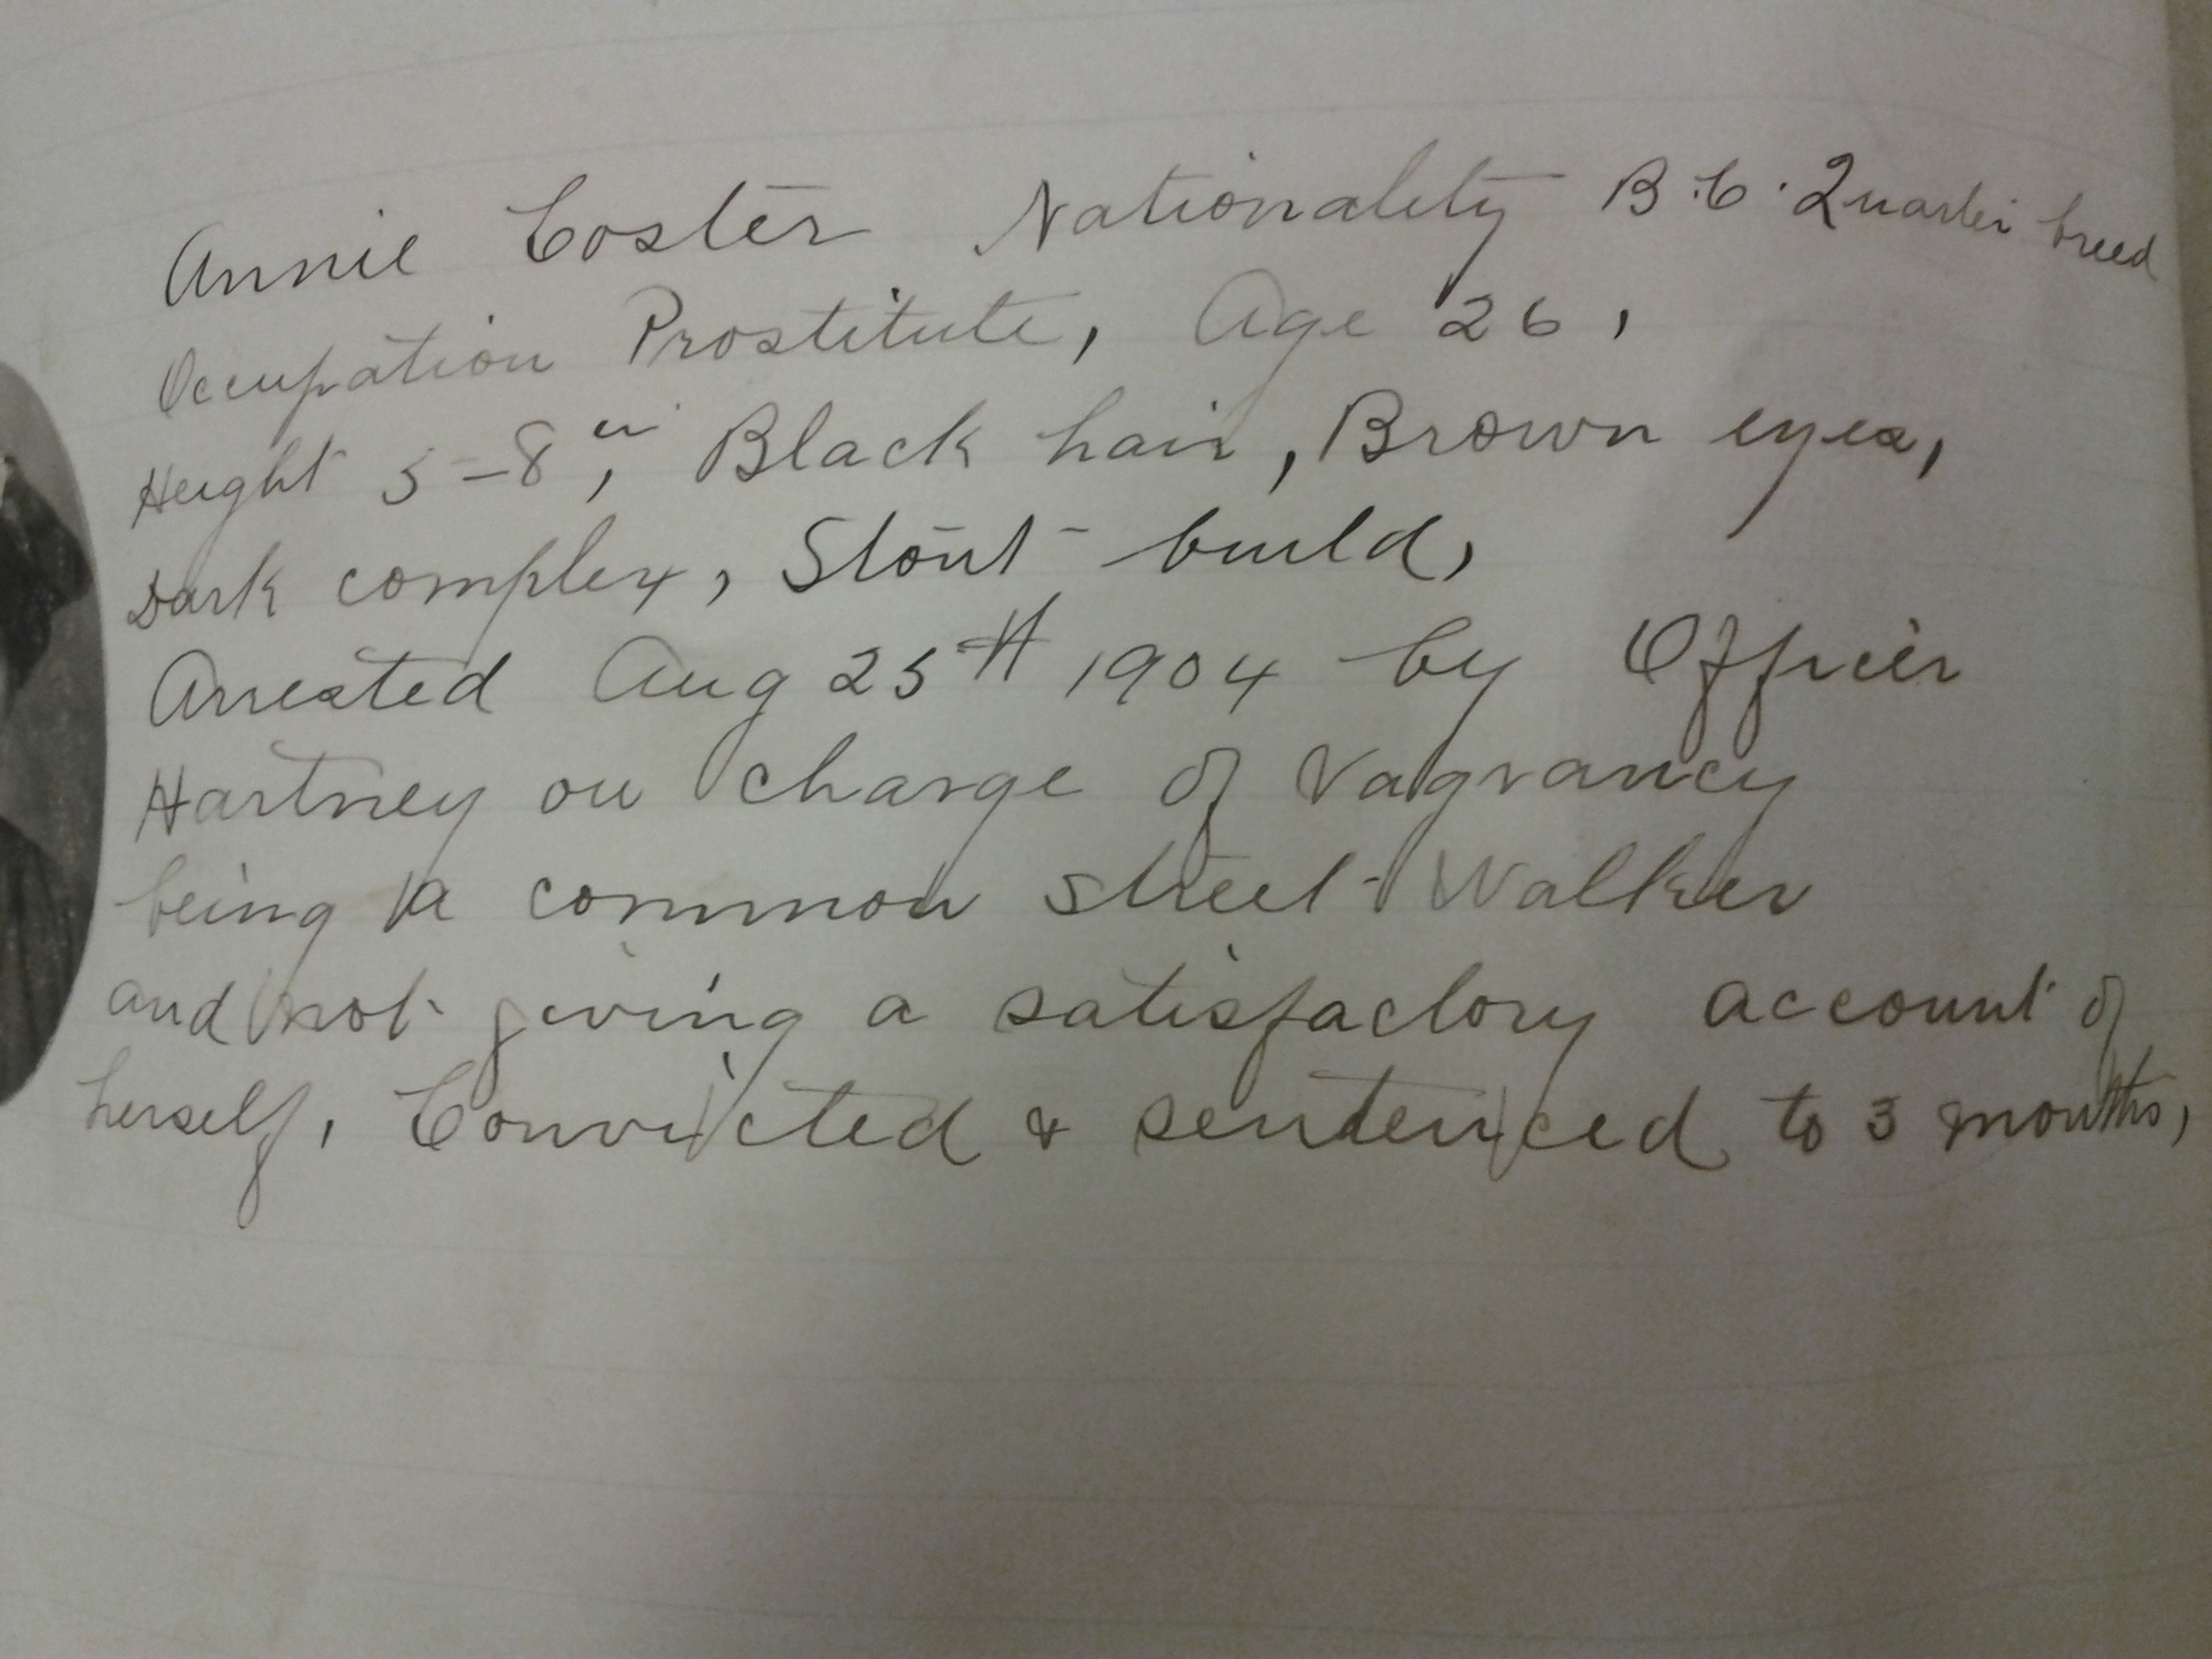 Annie Coster Nationality B.C. Quarter breed
Occupation Prostitute, Age 26,
Height 5-8 in, Black hair, Brown eyes,
Dark complex, Stout build,
Arrested Aug 25th 1904 by Officer
Hartney on charge of Vagrancy
being a common street Walker
and not giving a satisfactory account of
herself, Convicted & sentenced to 3 months,